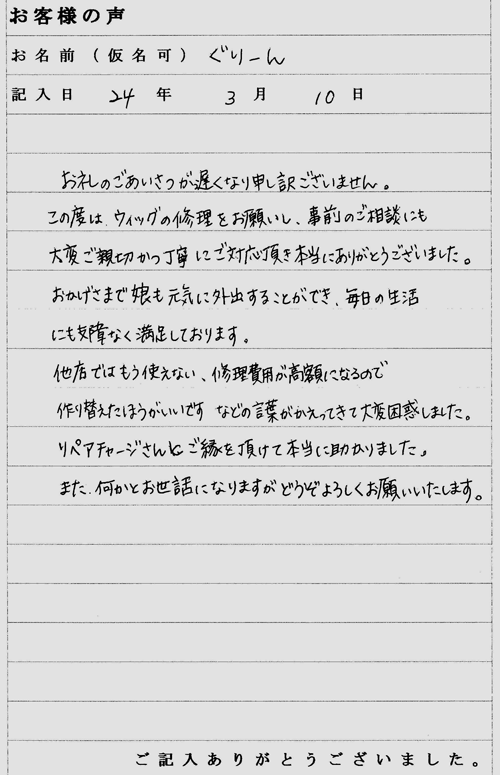 お客様の声
お名前(仮名可) ぐりーん
記入日 24 年 3 月 10 日
お礼のごあいさつが遅くなり申し訳ございません。
この度は、ウィッグの修理をお願いし、事前のご相談にも
大変ご親切かつ丁寧にご対応頂き本当にありがとうございました。
おかげさまで娘も元気に外出することができ、毎日の生活
にも支障なく満足しております。
他店ではもう使えない、修理費用が高額になるので
作り替えたほうがいいです などの言葉がかえってきて大変困惑しました。
リペアチャージさんとご縁を頂けて本当に助かりました。
また、何かとお世話になりますがどうぞよろしくお願いいたします。
ご記入ありがとうございました。